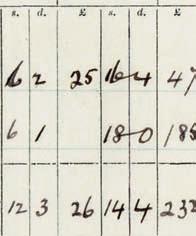 s. d. £ s. d. £
6 2 25 16 4 47
6 1 18 0 188
12 3 26 14 4 232